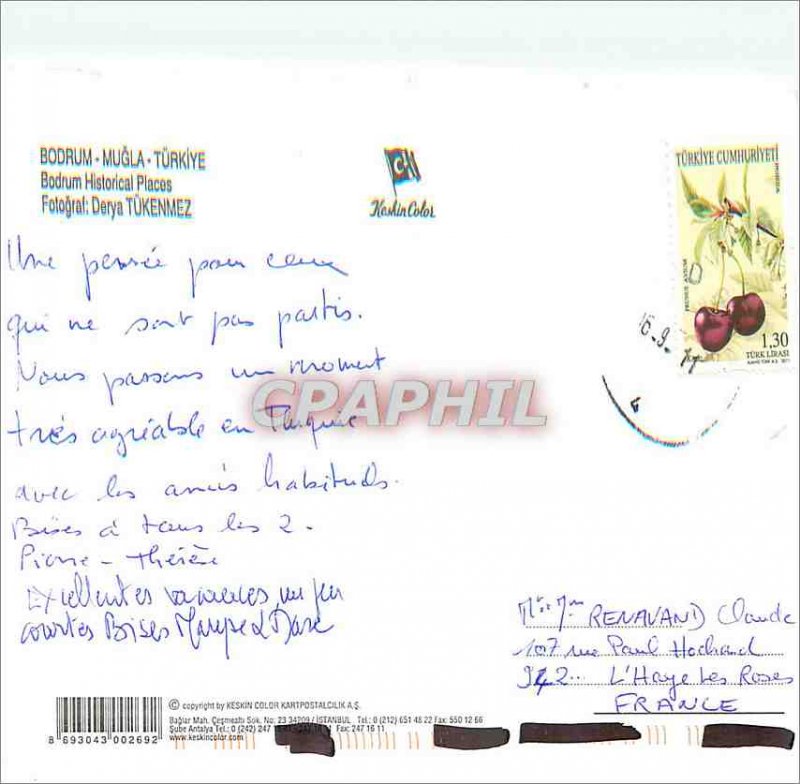 BODRUM - MUĞLA - TÜRKİYE
Bodrum Historical Places
Fotoğraf: Derya TÜKENMEZ
Keskin Color
TÜRKİYE CUMHURİYETİ
PRUNUS AVIUM
1.30
TÜRK LİRASI
16.9.11
Une pensée pour ceux
qui ne sont pas partis.
Nous passons un moment
très agréable en Turquie
avec les amis habituels.
Bises à tous les 2.
Pierre - Thérèse
Excellentes vacances un peu
courtes Bises
CPAPHIL
Mr Mme RENAVAND Claude
107 rue Paul Hochard
942.. L'Haye Les Roses
FRANCE
8 693043 002692
© copyright by KESKİN COLOR KARTPOSTALCILIK A.Ş.
Bağlar Mah. Çeşmealtı Sok. No: 23 34209 / İSTANBUL Tel.: 0 (212) 651 48 22 Fax: 550 12 66
Şube Antalya Tel.: 0 (242) 247 Fax: 247 16 11
www.keskincolor.com